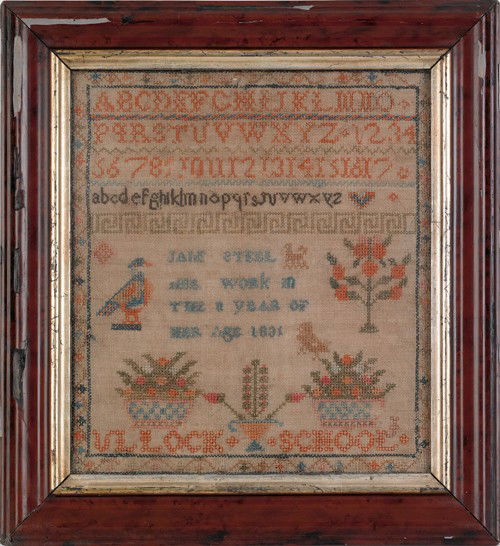 ABCDEFGHIJKLMNO
PQRSTUVWXYZ 1234
56789 10 11 12 13 14 15 16 17
abcdefghiklmnopqrstuvwxyz
JANE STEEL
HER WORK IN
THE 8 YEAR OF
HER AGE 1831
ULLOCK SCHOOL